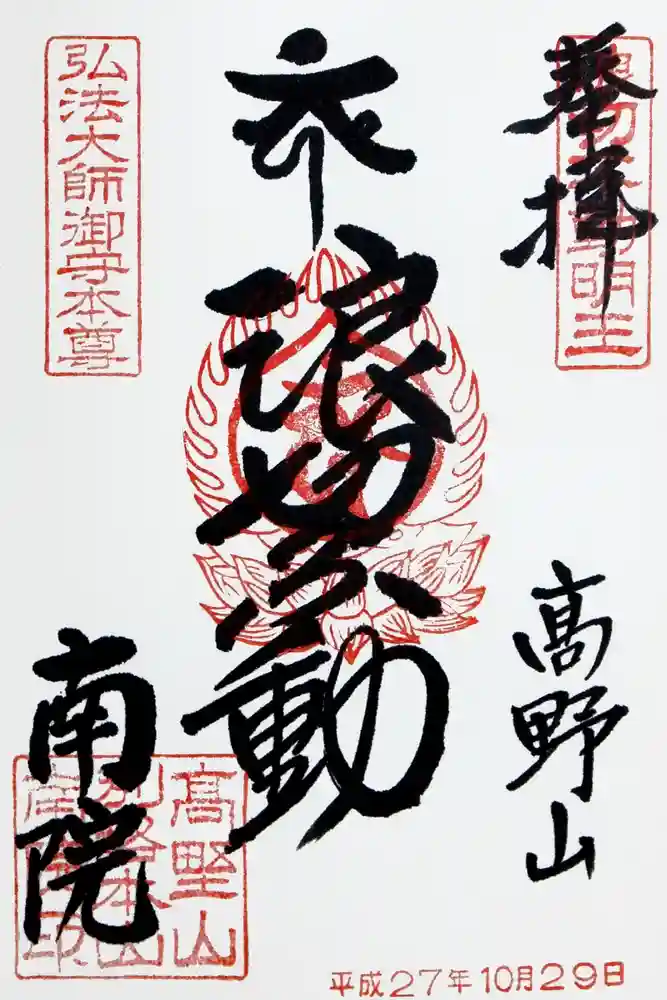 奉拝
高野山
浪切不動
南院
弘法大師御守本尊
平成27年10月29日